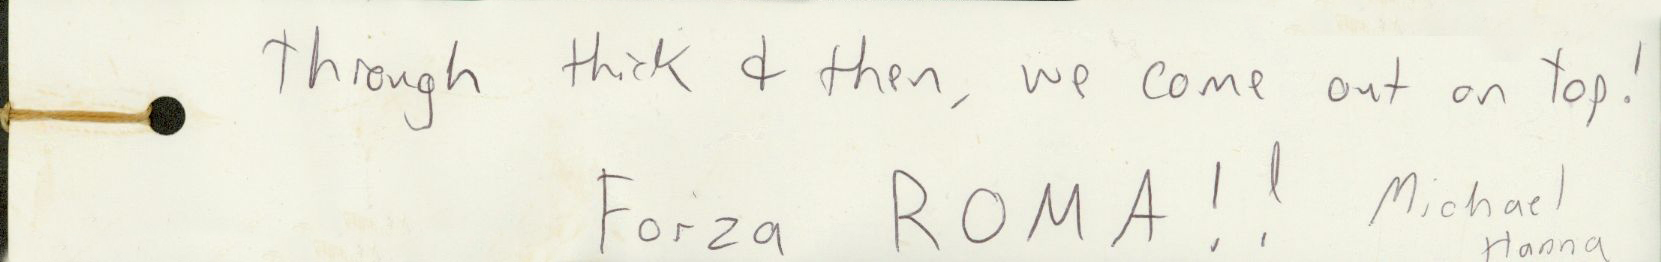 Through thick & then, we come out on top!
Forza ROMA!! Michael
Hanna